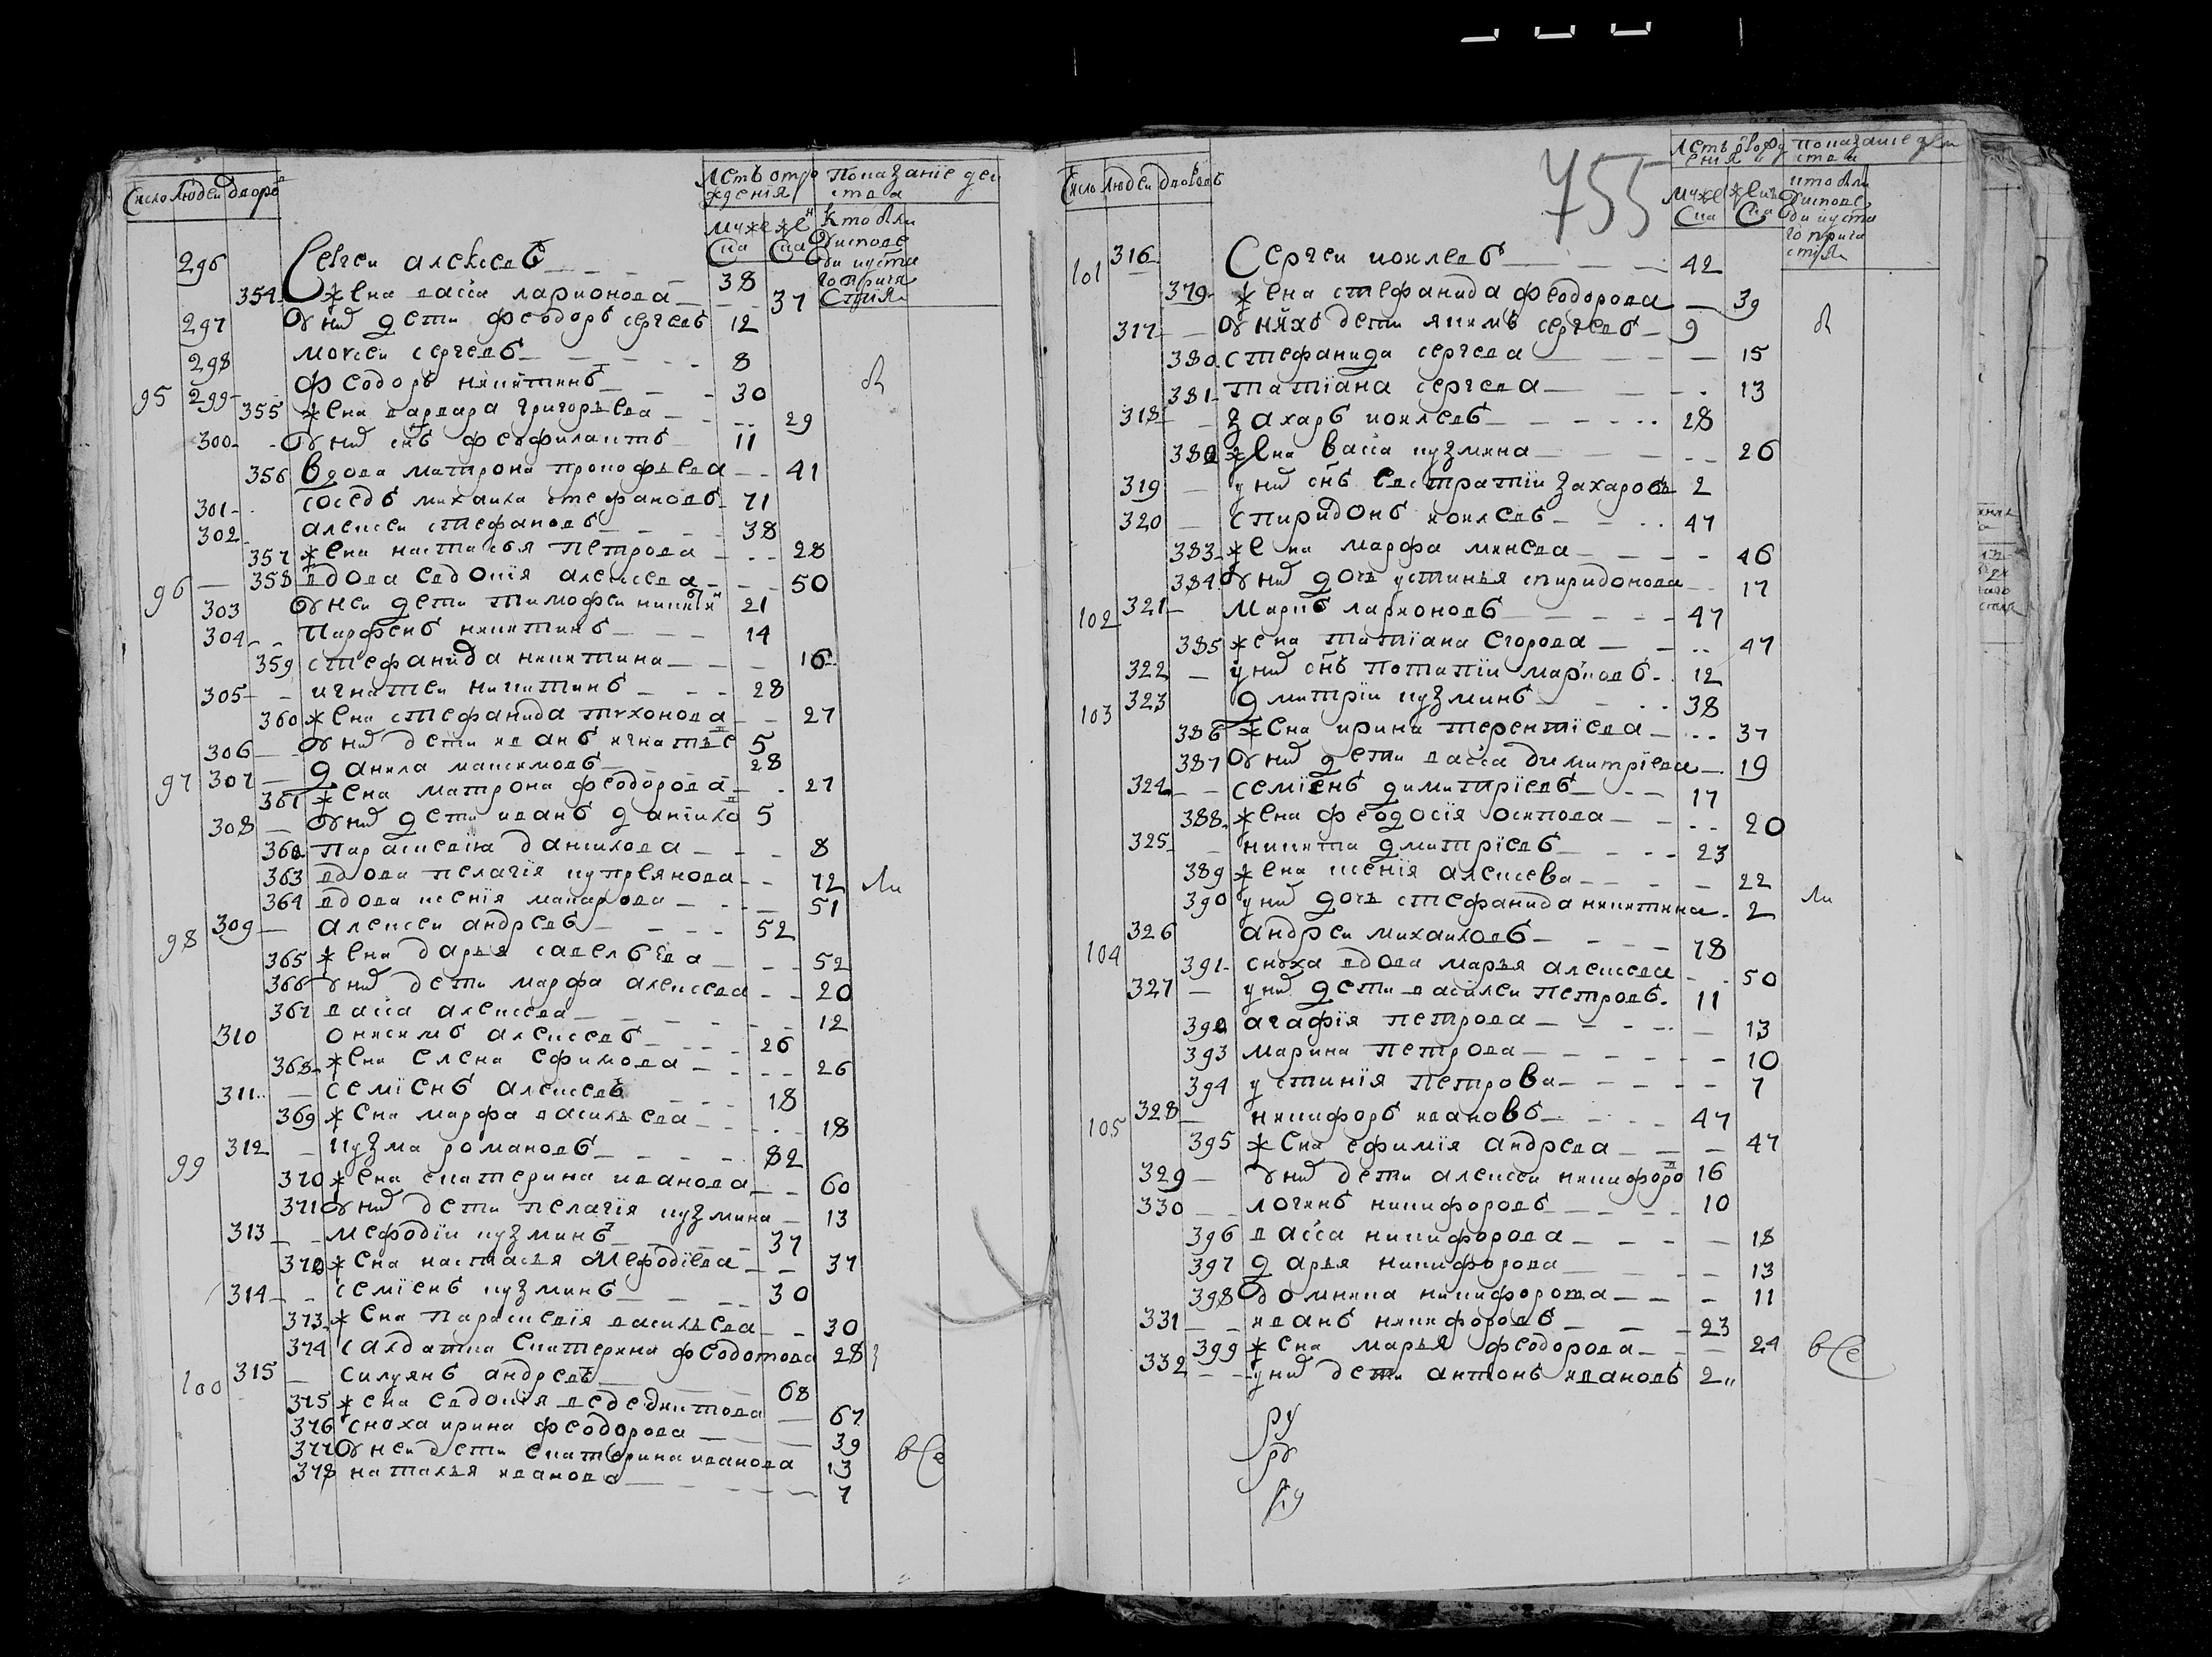 Число людеи дворѡ
Летъ отро Показание деи
ждения ства
муже же н кто были
ска ска
296 Сергеи алексеевъ 38
354 жена васса ларионова 37
297 ѹ них дети феодоръ сергеевъ 12
298 моисеи сергеевъ 8
95 299 феодоръ никитинъ 30
355 жена варвара григорьева 29
300 ѹ них снъ феофилактъ 11
356 вдова матрона прокофьева 41
301 соседъ михаила стефановъ 71
302 алексеи стефановъ 38
357 жена настасья петрова 28
96 358 вдова евдокия алексеева 50
303 ѹ неи дети тимофеи никити н 21
304 парфенъ никитинъ 14
359 стефанида никитина 16
305 игнатеи никитинъ 28
360 жена стефанида тихонова 27
306 ѹ них дети иванъ игнатье в 5
97 307 данила максимовъ 28
361 жена матрона феодорова 27
308 ѹ них дети иванъ данило в 5
362 парасковия данилова 8
363 вдова пелагїя куприянова 72 ли
364 вдова ксенїя макарова 51
98 309 алексеи андреевъ 52
365 жена дарья савельева 52
366 ѹ них дети марфа алексеева 20
367 васса алексеева 12
310 онисимъ алексеевъ 26
368 жена елена ефимова 26
311 семїенъ алексеевъ 18
369 жена марфа васильева 18
99 312 кузма романовъ 82
370 жена екатерина иванова 60
371 ѹ них дети пелагїя кузмина 13
313 мефодїи кузминъ 37
372 жена настасья мефодїева 37
314 семїенъ кузминъ 30
373 жена парасковїя васильева 30
374 салдатка екатерина федотова 28
100 315 силуянъ андреевъ 68
375 жена евдокїя 67
376 сноха ирина феодорова 39
377 ѹ неи дети екатерина иванова 13 все
378 наталья иванова 7
755
Число людеи дворовъ
101 316 Сергеи иовлевъ 42
379 жена стефанида феодорова 39
317 ѹ нихъ дети якимъ сергеевъ 9
380 стефанида сергеева 15
381 татїана сергеева 13
318 захаръ иовлевъ 28
382 жена васса кузмина 26
319 у них снъ евстратїи захаровъ 2
320 спиридонъ иовлевъ 47
383 жена марфа минеева 46
384 ѹ них дочь устинья спиридонова 17
102 321 маркъ ларионовъ 47
385 жена татїана егорова 47
322 у них снъ потапїи марковъ 12
103 323 дмитрїи кузминъ 38
386 жена ирина терентїева 37
387 ѹ них дети васса димитрїева 19
324 семїенъ димитрїевъ 17
388 жена феодосїя осипова 20
325 никита дмитрїевъ 23
389 жена ксенїя алексева 22
390 у них дочь стефанида никитина 2 ли
104 326 андреи михаиловъ 78
391 сноха вдова марья алексеева 50
327 у них дети василеи петровъ 11
392 агафїя петрова 13
393 марина петрова 10
394 устинїя петрова 7
105 328 никифоръ ивановъ 47
395 жена ефимїя андреева 47
329 ѹ них дети алексеи никифоро в 16
330 логинъ никифоровъ 10
396 васса никифорова 18
397 дарья никифорова 13
398 домника никифорова 11
331 иванъ никифоровъ 23
399 жена марья феодорова 24 все
332 у них дети антонъ ивановъ 2